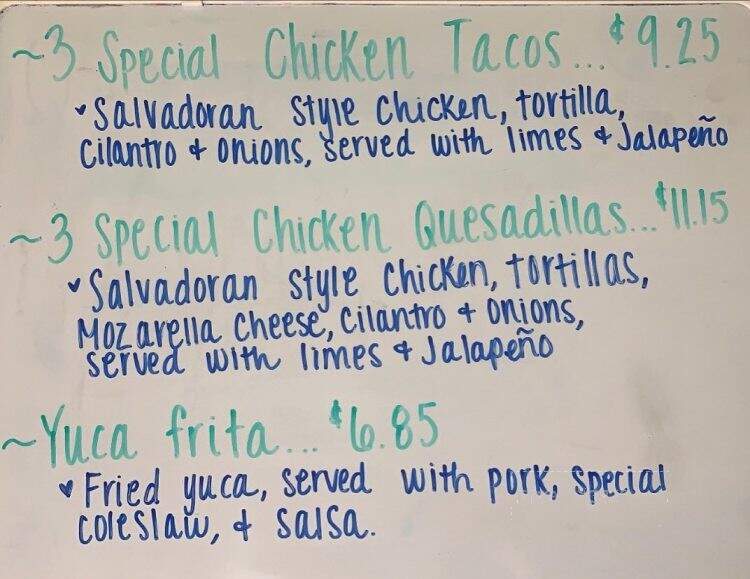 ~3 Special Chicken Tacos...$9.25
♥Salvadoran style chicken, tortilla,
cilantro + onions, served with limes + Jalapeño
~3 Special Chicken Quesadillas...$11.15
♥Salvadoran style chicken, tortillas,
Mozarella cheese, cilantro + onions,
served with limes + Jalapeño
~Yuca frita...$6.85
♥Fried yuca, served with pork, special
coleslaw, + salsa.